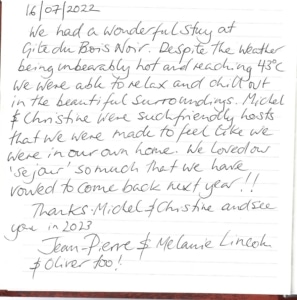 16/07/2022
We had a wonderful stay at
Gite du Bois Noir. Despite the weather
being unbearably hot and reaching 43°c
we were able to relax and chill out
in the beautiful surroundings. Michel
& Christine were such friendly hosts
that we were made to feel like we
were in our own home. We loved our
'sejour' so much that we have
vowed to come back next year!!
Thanks Michel & Christine and see
you in 2023
Jean-Pierre & Melanie Lincoln
& Oliver too!